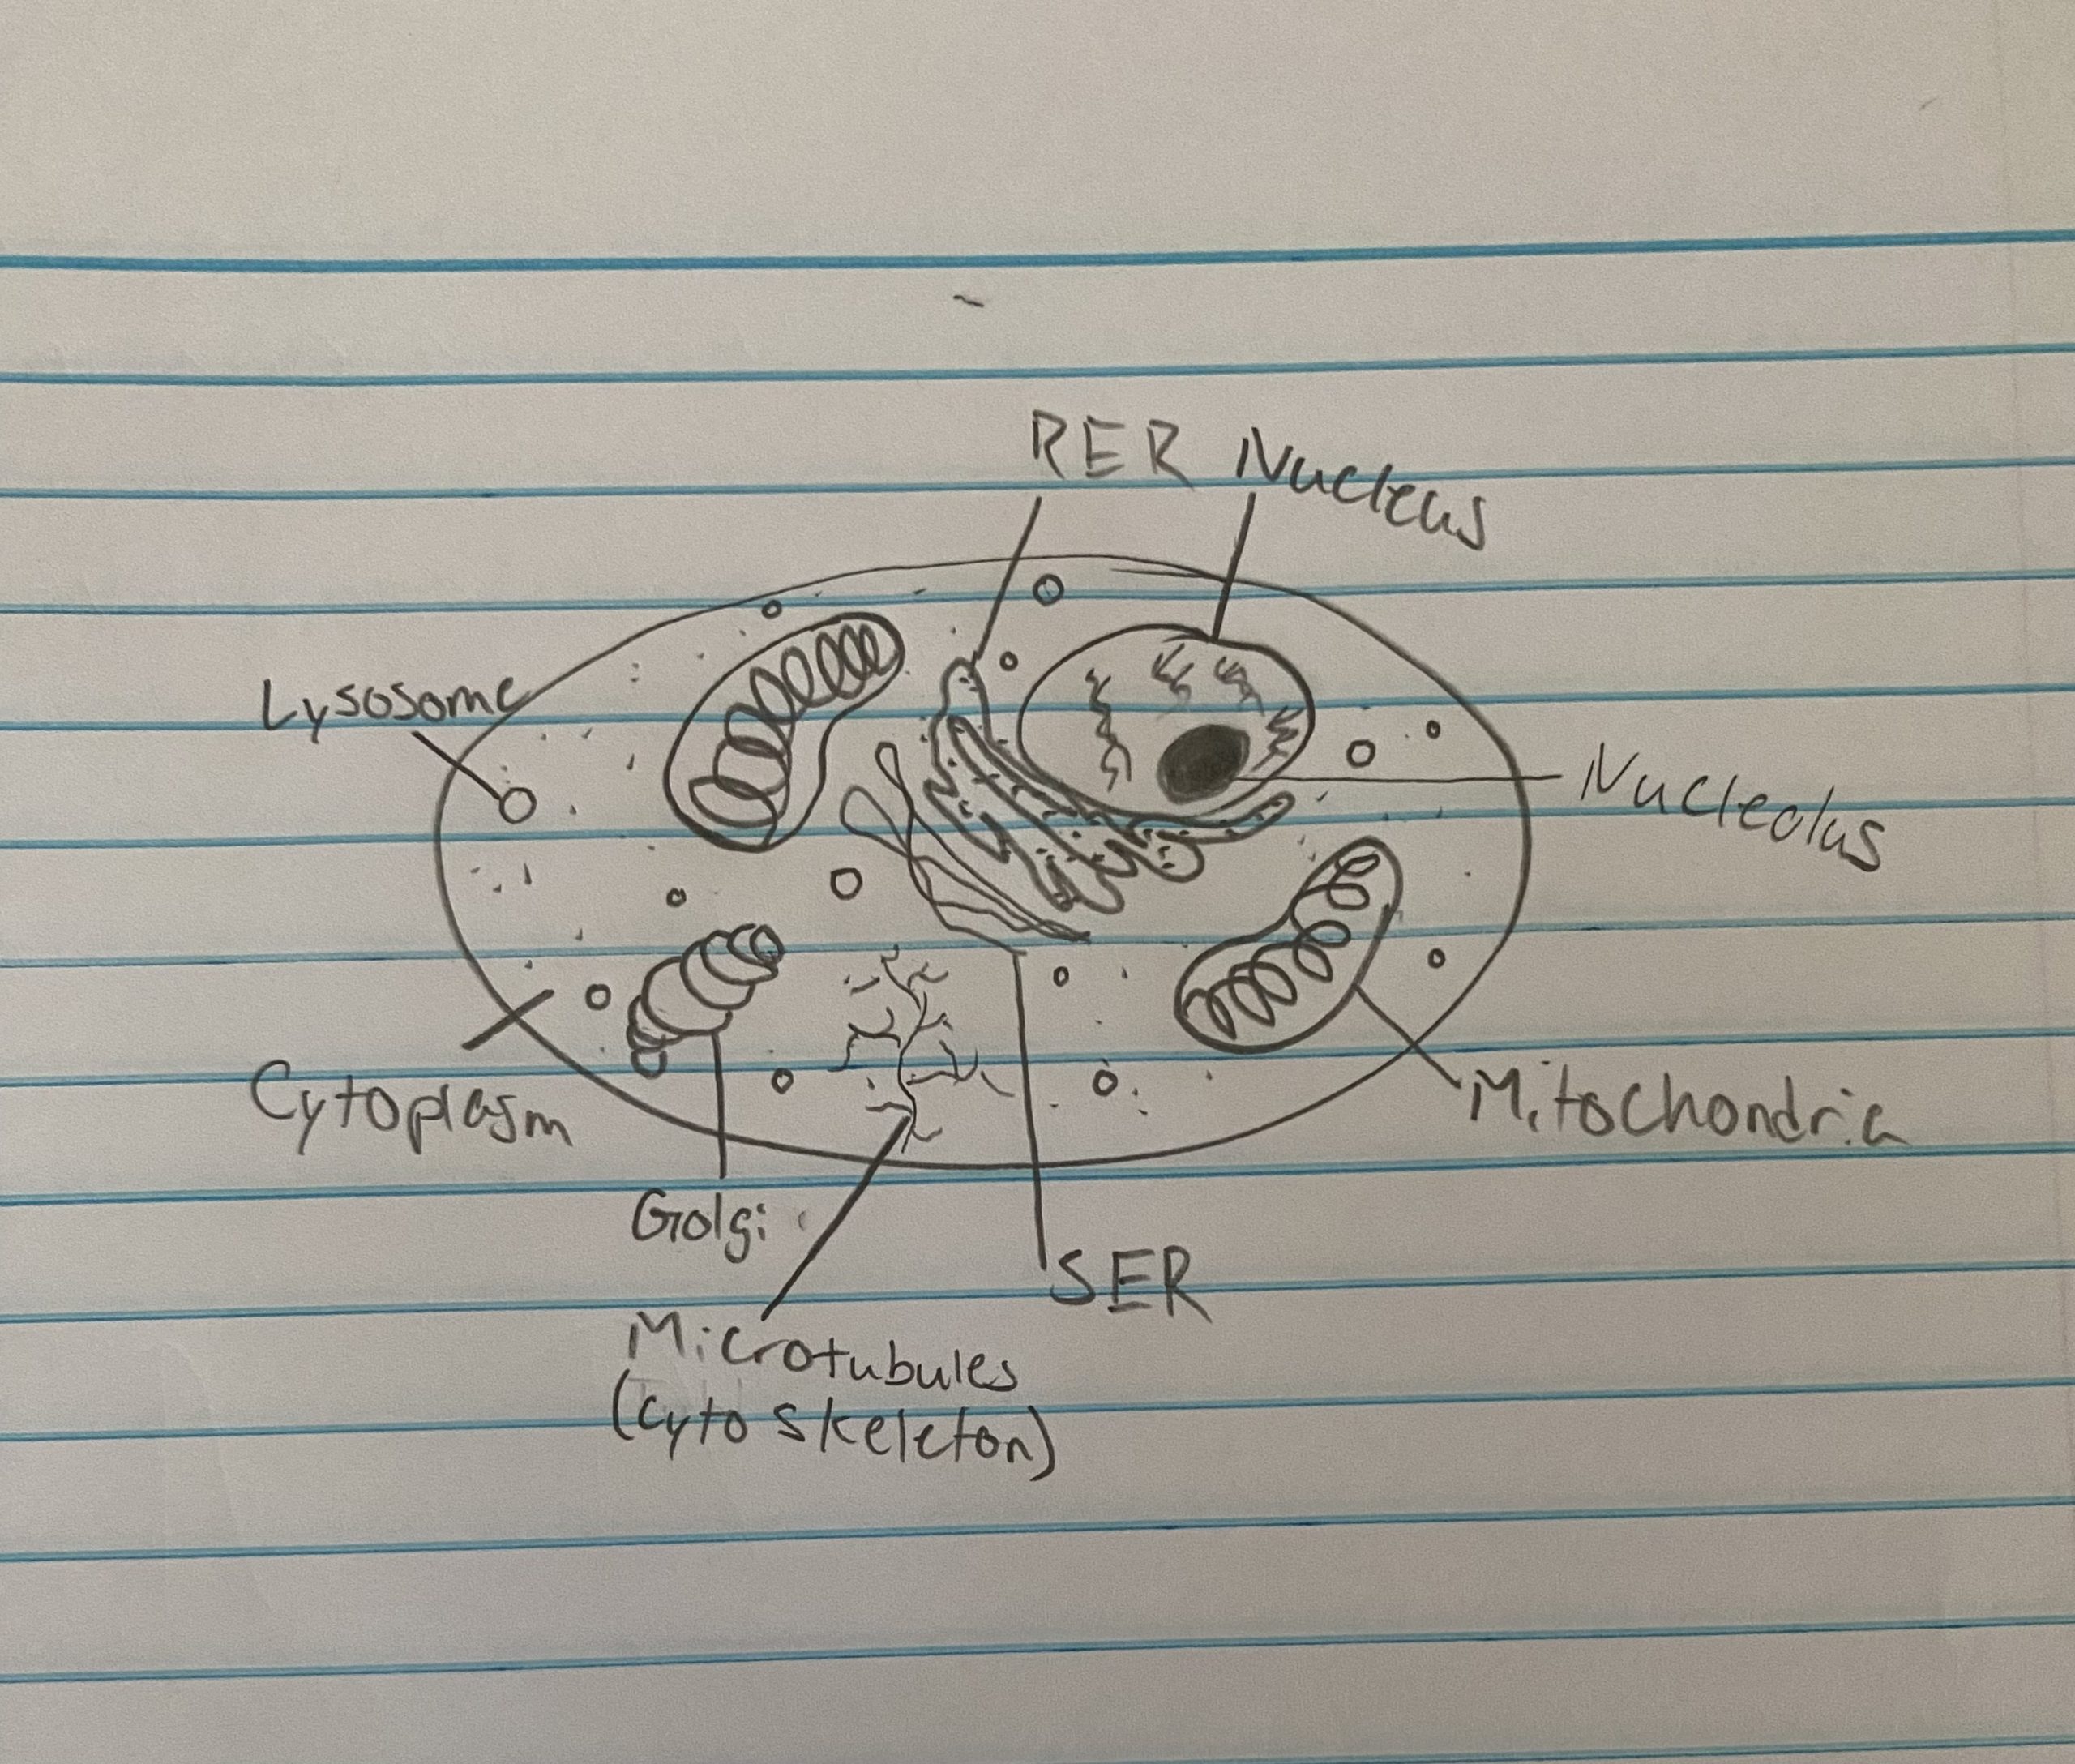 RER Nucleus
Lysosome
Nucleolus
Cytoplasm
Mitochondria
Golgi
SER
Microtubules
(cytoskeleton)